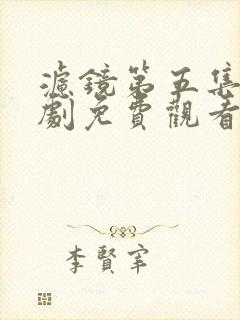 濾鏡第五集
劇免費觀看
李賢宰